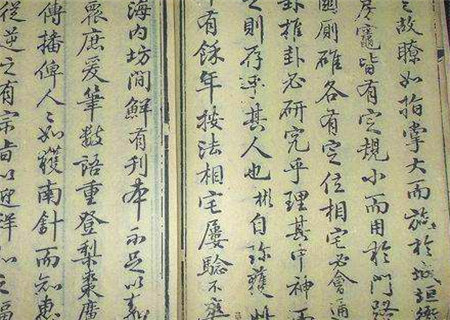 之故瞭如指掌大而施於城垣
竈皆有定規小而用於門路
圊厠碓各有定位相宅必會通
卦推卦必研究乎理其中神而
之則存乎其人也彬自珎獲
有餘年按法相宅屢驗不
海內坊間鮮有刊本不足以
衆庶爰筆數語重登梨棗廣
傳播俾人人如獲南針而知
從逆之有宗旨以迎祥